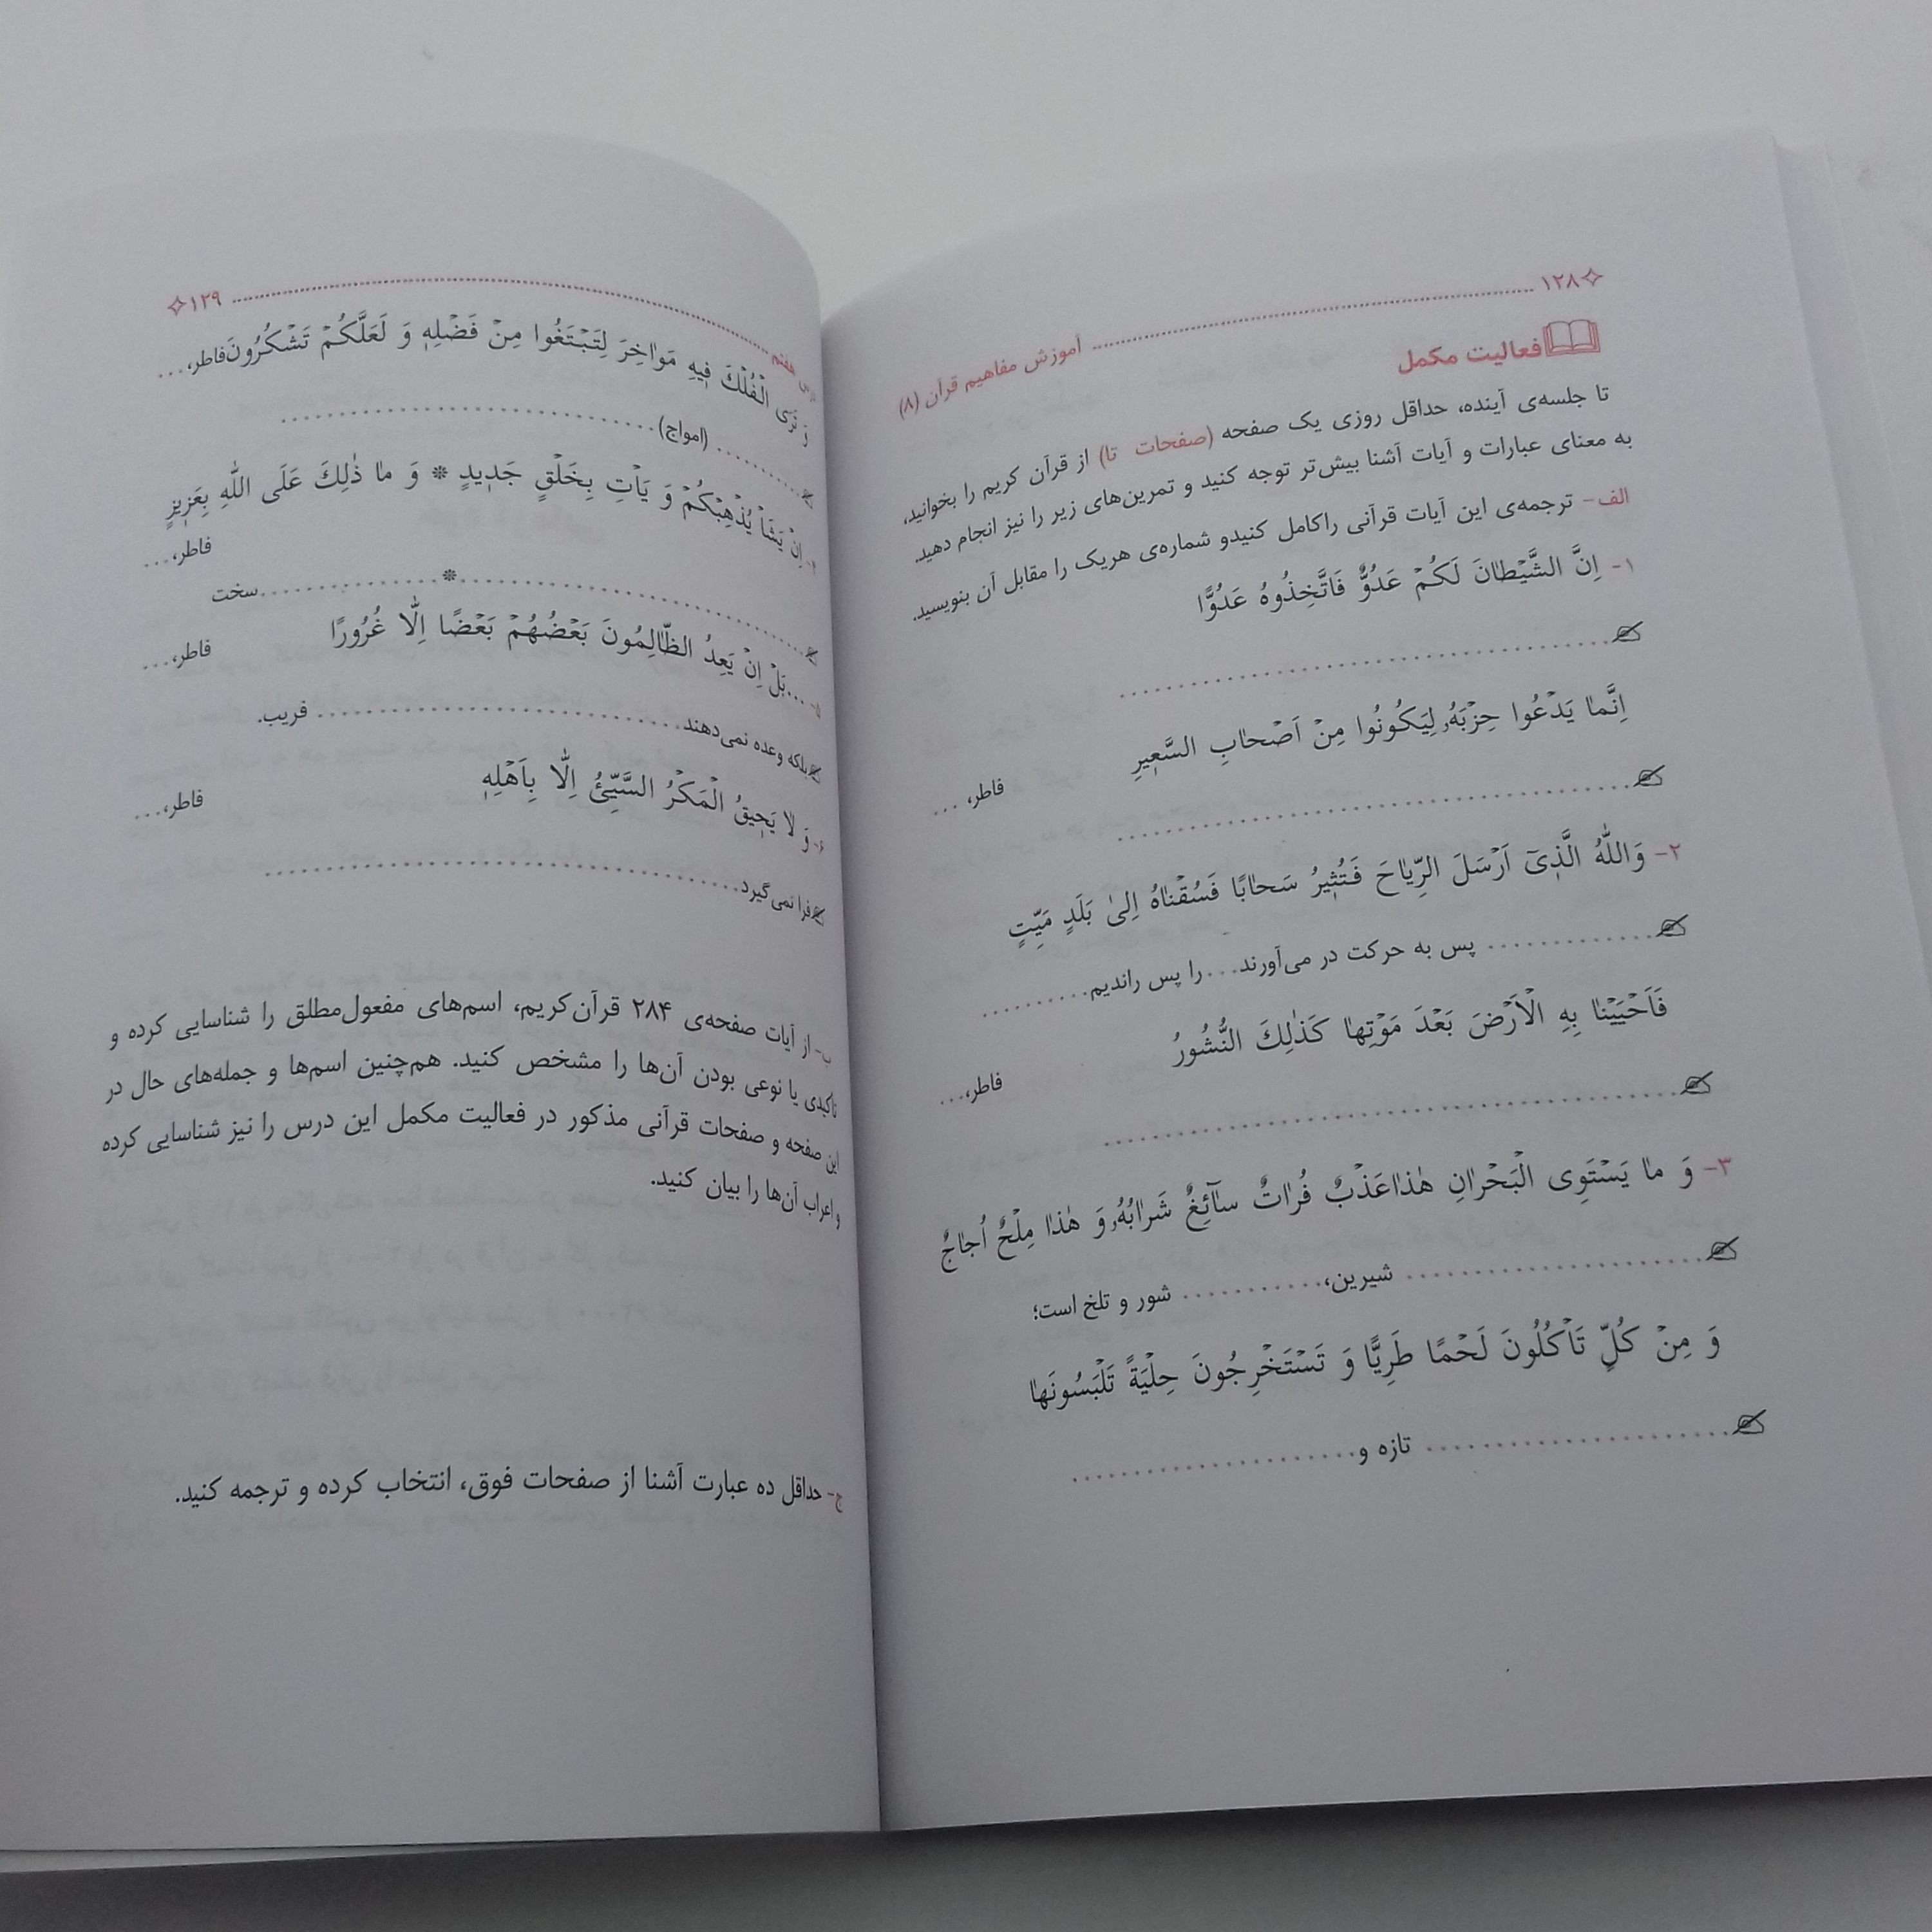 ۱۲۸
آموزش مفاهیم قرآن (۸)
فعالیت مکمل
تا جلسه‌ی آینده، حداقل روزی یک صفحه (صفحات تا) از قرآن کریم را بخوانید،
به معنای عبارات و آیات آشنا بیش‌تر توجه کنید و تمرین‌های زیر را نیز انجام دهید.
الف- ترجمه‌ی این آیات قرآنی راکامل کنیدو شماره‌ی هریک را مقابل آن بنویسید.
۱- اِنَّ الشَّيْطانَ لَكُمْ عَدُوٌّ فَاتَّخِذُوهُ عَدُوًّا
..........................................
اِنَّما يَدْعُوا حِزْبَهُ لِيَكُونُوا مِنْ اَصْحابِ السَّعيرِ
فاطر، ...
..........................................
۲- وَاللّٰهُ الَّذي اَرْسَلَ الرِّياحَ فَتُثيرُ سَحابًا فَسُقْناهُ اِلىٰ بَلَدٍ مَيِّتٍ
.............. پس به حرکت در می‌آورند...را پس راندیم..........
فَاَحْيَيْنا بِهِ الْاَرْضَ بَعْدَ مَوْتِها كَذٰلِكَ النُّشُورُ
فاطر،...
..........................................
۳- وَ ما يَسْتَوِى الْبَحْرانِ هٰذاعَذْبٌ فُراتٌ سآئِغٌ شَرابُهُ وَ هٰذا مِلْحٌ اُجاجٌ
......................... شیرین،............ شور و تلخ است؛
وَ مِنْ كُلٍّ تَأْكُلُونَ لَحْمًا طَرِيًّا وَ تَسْتَخْرِجُونَ حِلْيَةً تَلْبَسُونَها
......................... تازه و......................
۱۲۹
درس هفتم
وَ تَرَى الْفُلْكَ فيهِ مَواخِرَ لِتَبْتَغُوا مِنْ فَضْلِهٖ وَ لَعَلَّكُمْ تَشْكُرُونَ فاطر،...
.......... (امواج)................................
۴- اِنْ يَشَأْ يُذْهِبْكُمْ وَ يَأْتِ بِخَلْقٍ جَديدٍ * وَ ما ذٰلِكَ عَلَى اللّٰهِ بِعَزيزٍ
فاطر،...
..............................*................سخت
۵- ...بَلْ اِنْ يَعِدُ الظّالِمُونَ بَعْضُهُمْ بَعْضًا اِلّا غُرُورًا
فاطر،...
بلکه وعده نمی‌دهند............................... فریب.
۶- وَ لا يَحيقُ الْمَكْرُ السَّيِّئُ اِلّا بِاَهْلِهٖ
فاطر،...
فرا نمی‌گیرد.........................................
ب- از آیات صفحه‌ی ۲۸۴ قرآن‌کریم، اسم‌های مفعول‌مطلق را شناسایی کرده و
تأکیدی یا نوعی بودن آن‌ها را مشخص کنید. هم‌چنین اسم‌ها و جمله‌های حال در
این صفحه و صفحات قرآنی مذکور در فعالیت مکمل این درس را نیز شناسایی کرده
و اعراب آن‌ها را بیان کنید.
ج- حداقل ده عبارت آشنا از صفحات فوق، انتخاب کرده و ترجمه کنید.